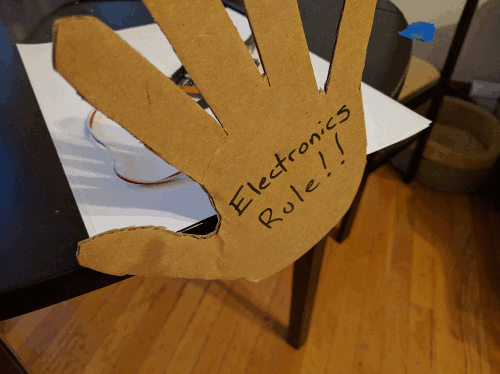 Electronics
Role!!